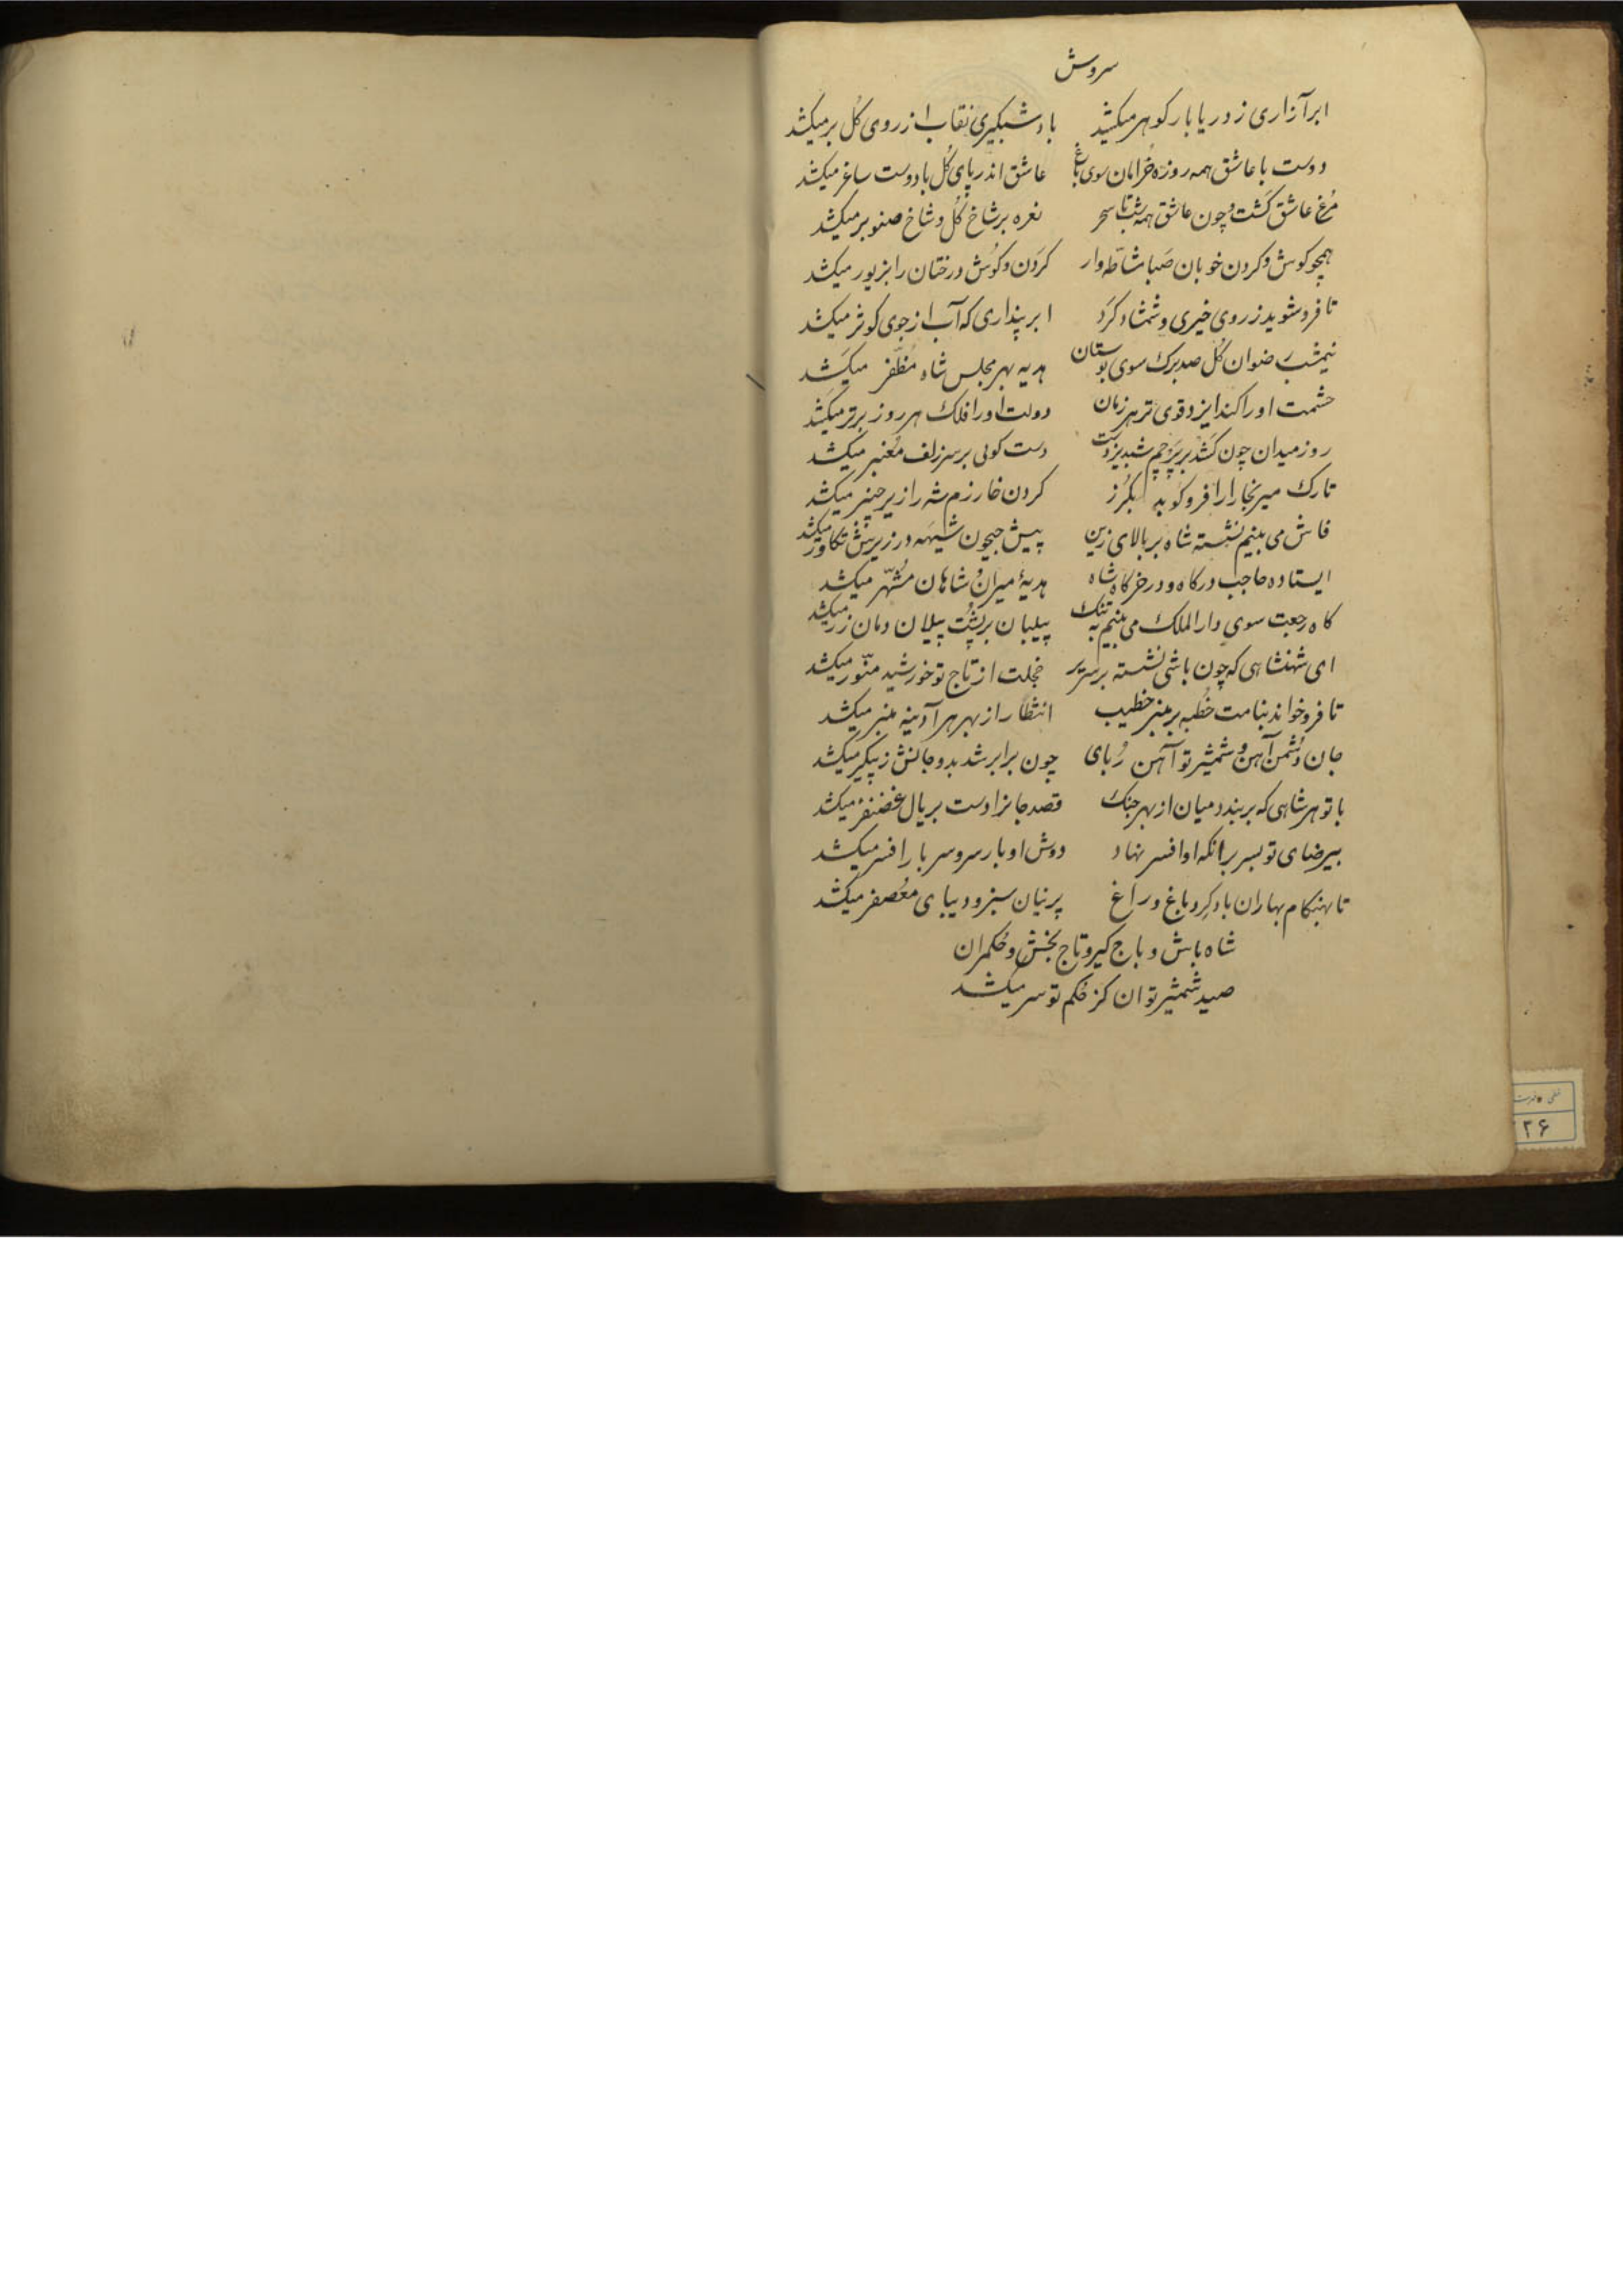 سروش
ابر آزاری ز دریا بار کوهر میکشد باد شبکیری نقاب از روی کُل بر میکشد
دوست با عاشق همه روزه خُرامان سوی باغ عاشق اندر پای کُل با دوست ساغر میکشد
مُرغ عاشق کشت و چون عاشق همه شب تا سحر نعره بر شاخ کُل و شاخ صنوبر میکشد
همچو کوش و کردن خوبان صَبا مشاطّه وار کردن و کوش درختان را بزیور میکشد
تا فرو شوید ز روی خیری و شمشاد کَرد ابر پنداری که آب از جوی کوثر میکشد
نیمشب رضوان کُل صد برک سوی بوستان هدیه بهر مجلس شاه مُظفّر میکَشد
حشمت او را کند ایزد قوی تر هر زمان دولت او را فلک هر روز برتر میکشد
روز میدان چون کَشد بر پَرچم شبدیز دست دست کوئی بر سر زلف مُعنبر میکشد
تارک میر بخارا را فرو کوبد بکُرز کردن خارزم شه را زیر چنبر میکشد
فاش می بینم نشسته شاه بر بالای زین پیش جیحون شیهه در زیرش تکاور میکشد
ایستاده حاجب درکاه و در خرکاه شاه هدیهٔ میران و شاهان مُشهّر میکشد
کاه رجعت سوی دار الملک می بینم به تنک پیلبان بر پشت پیلان دمان زر میکشد
ای شهنشاهی که چون باشی نشسته بر سریر خجلت از تاج تو خورشید منوّر میکشد
تا فرو خواند بنامت خُطبه بر منبر خطیب انتظار از بهر هر آدینه منبر میکشد
جان دُشمن آهن و شمشیر تو آهن رُبای چون برابر شد بدو جانش ز پیکر میکشد
با تو هر شاهی که بر بندد میان از بهر جنک قصد جانرا دست بر یال غضنفر میکشد
بیرضای تو بسر بر آنکه او افسر نهاد دوش او بار سر و سر بار افسر میکشد
تا بهنکام بهاران باد کِرد باغ و راغ پرنیان سبز و دیبای معُصفر میکشد
شاه باش و باج کیر و تاج بخش و حُکمران
صید شمشیر تو ان کز حُکم تو سر میکشد
۲۶